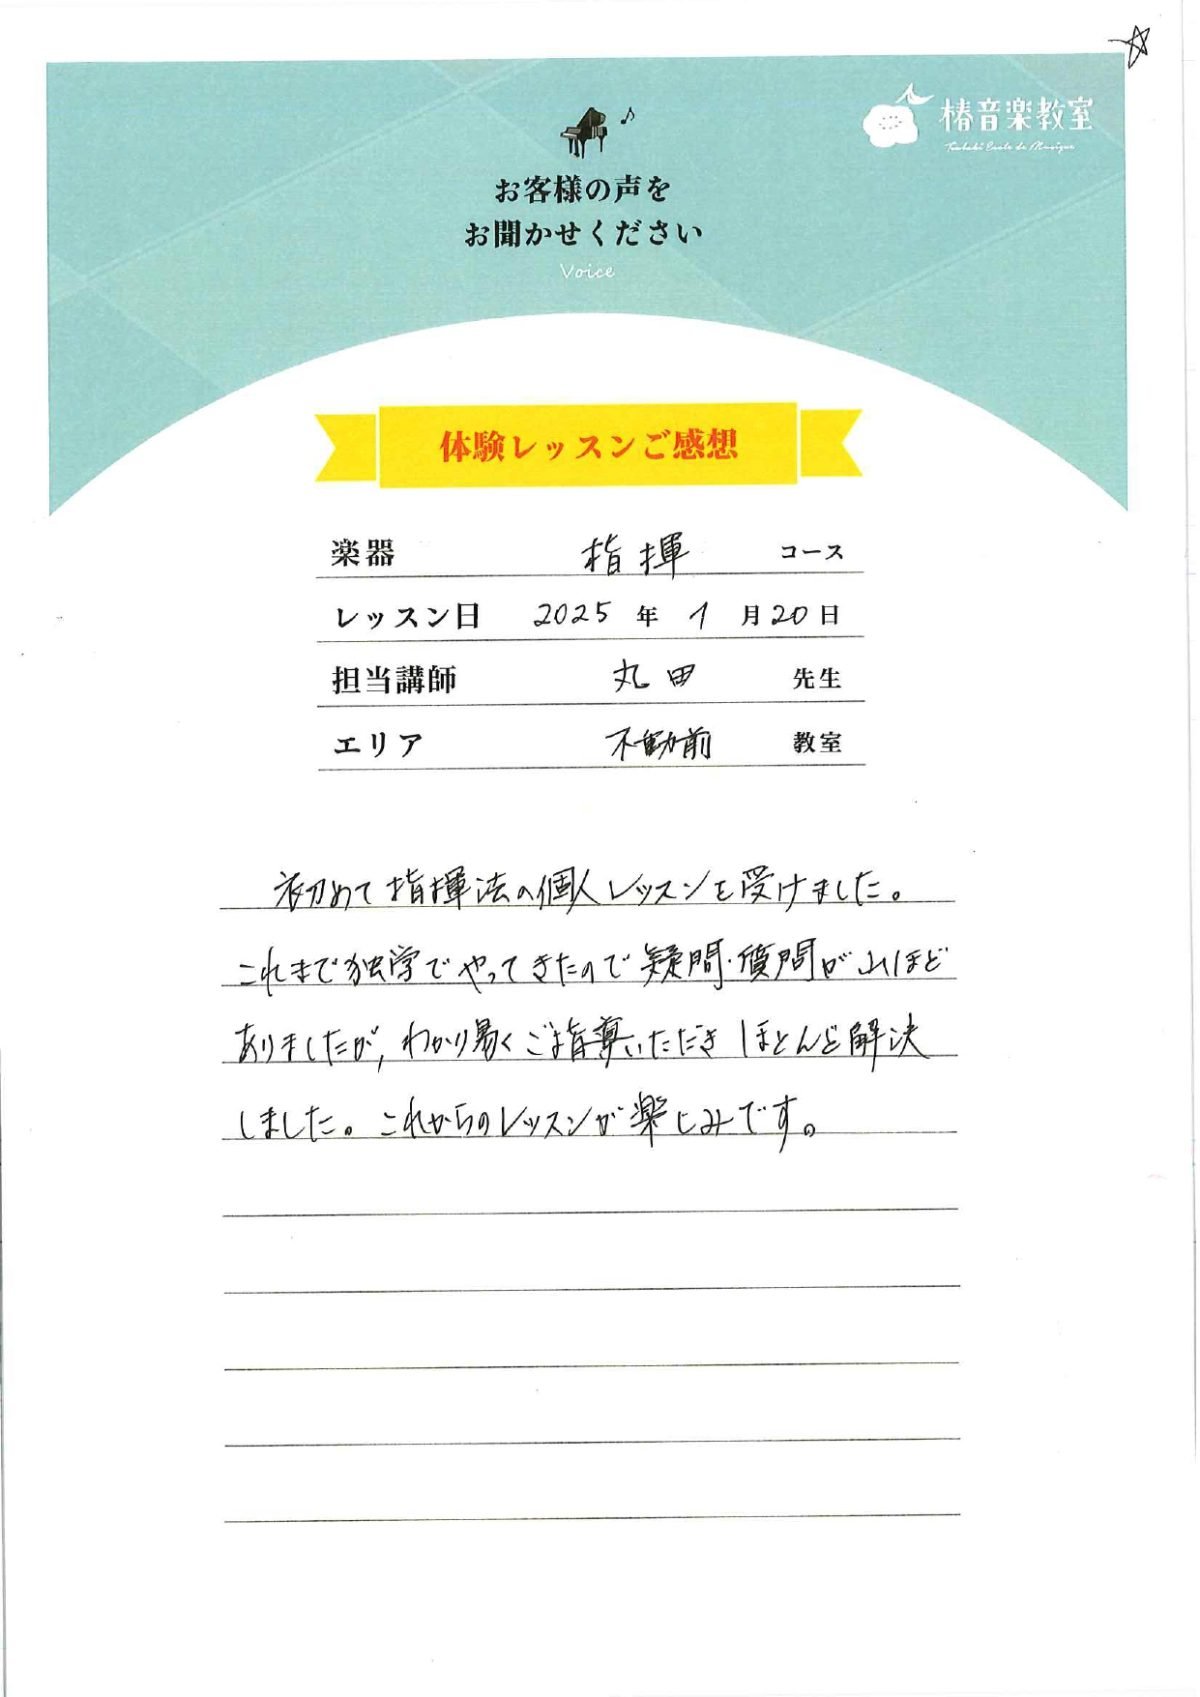 椿音楽教室
Tsubaki Ecole de Musique
お客様の声を
お聞かせください
Voice
体験レッスンご感想
楽器 指揮 コース
レッスン日 2025 年 1 月 20 日
担当講師 丸田 先生
エリア 不動前 教室
初めて指揮法の個人レッスンを受けました。
これまで独学でやってきたので疑問・質問が山ほど
ありましたが、わかり易くご指導いただきほとんど解決
しました。これからのレッスンが楽しみです。